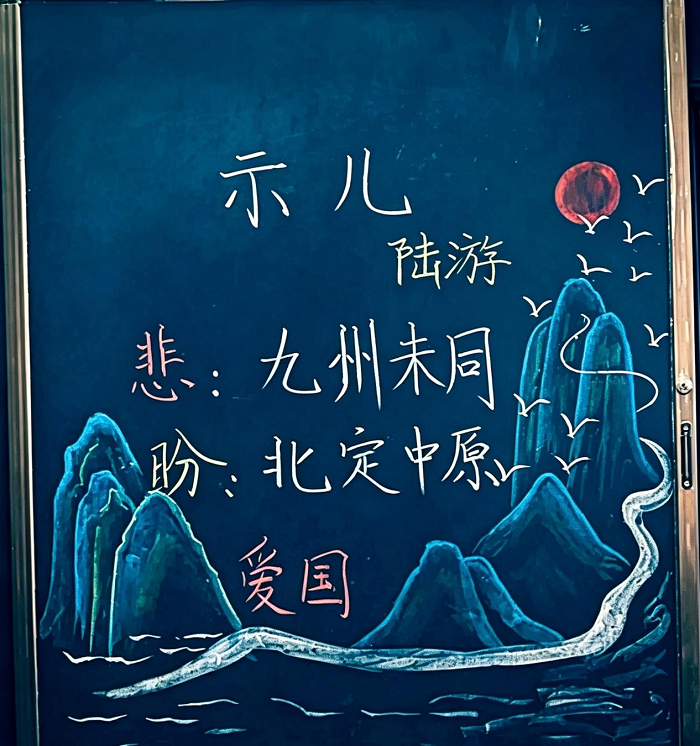 示儿
陆游
悲：九州未同
盼：北定中原
爱国